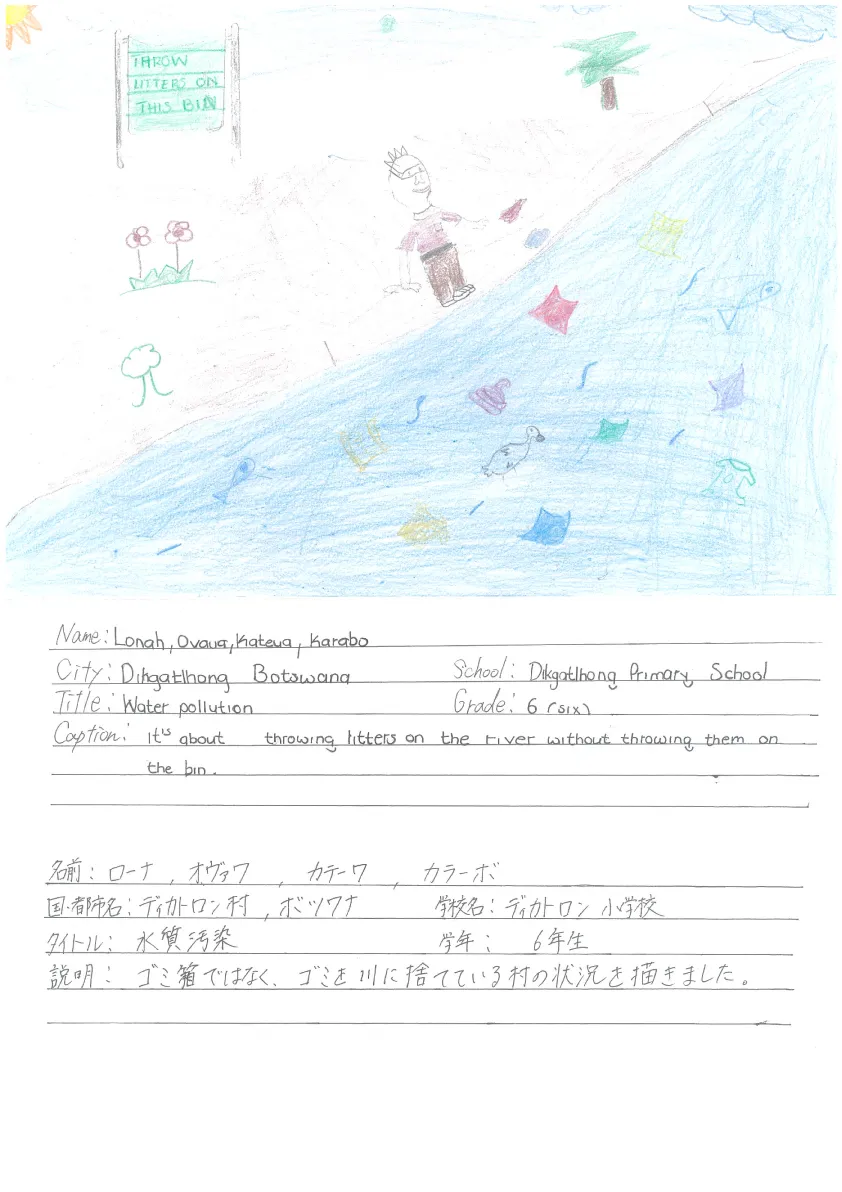 THROW
LITTERS ON
THIS BIN
Name: Lonah, Ovaua, Kateua, Karabo
City: Dikgatlhong Botswana School: Dikgatlhong Primary School
Title: Water pollution Grade: 6 (six)
Caption: it's about throwing litters on the river without throwing them on
the bin.
名前: ローナ , オヴァワ , カテーワ , カラーボ
国・都市名: ディカトロン村 , ボツワナ 学校名: ディカトロン 小学校
タイトル: 水質汚染 学年: 6年生
説明: ゴミ箱ではなく、ゴミを川に捨てている村の状況を描きました。